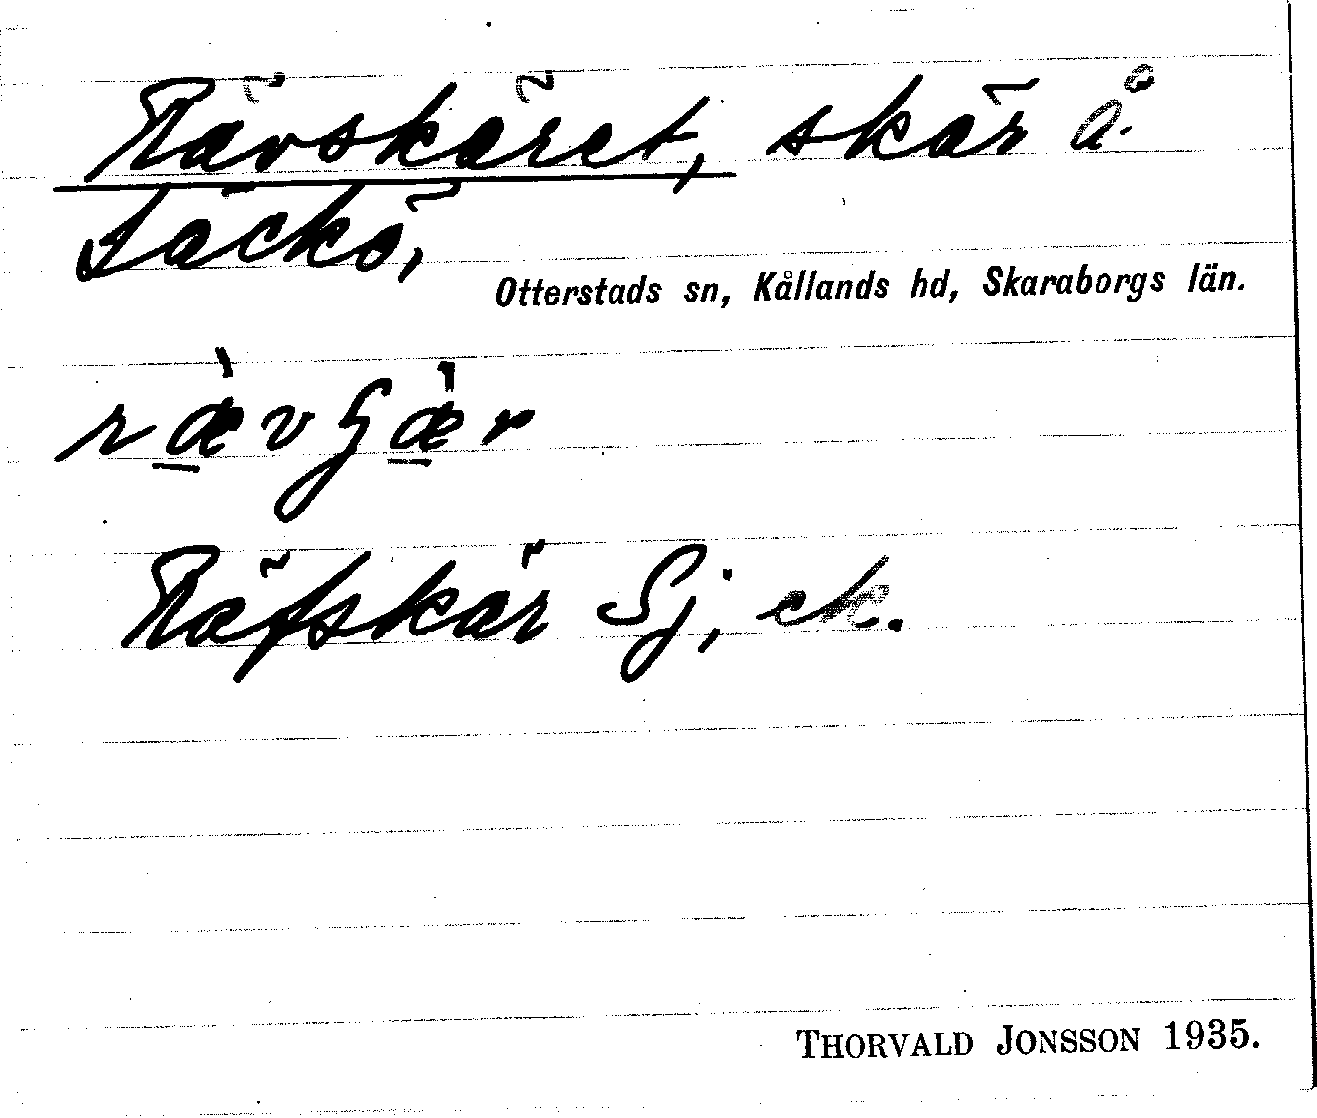 Rävskäret, skär å
Läckö,
Otterstads sn, Kållands hd, Skaraborgs län.
ræ̀vʃæ̀r
Räfskär Sj, ek.
THORVALD JONSSON 1935.